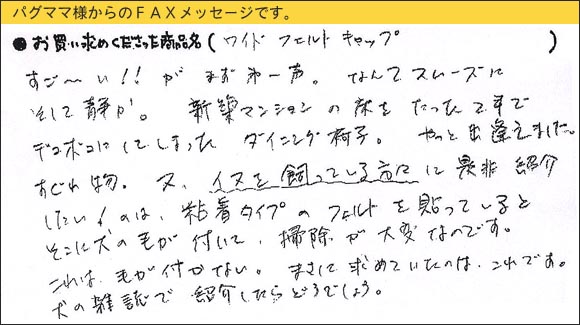 パグママ様からのＦＡＸメッセージです。
●お買い求めくださった商品名（ワイド フェルト キャップ ）
すご〜い!! が まず第一声。なんてスムーズに
そして静か。新築マンションの床をたった2年で
デコボコにしてしまった ダイニング椅子。やっと出逢えました。
すぐれ物。又、イヌを飼っている方々に是非 紹介
したい! のは、粘着タイプのフェルトを貼っていると
そこに犬の毛が付いて、掃除が大変なのです。
これは、毛が付かない。まさに求めていたのは、これです。
犬の雑誌で 紹介したらどうでしょう。